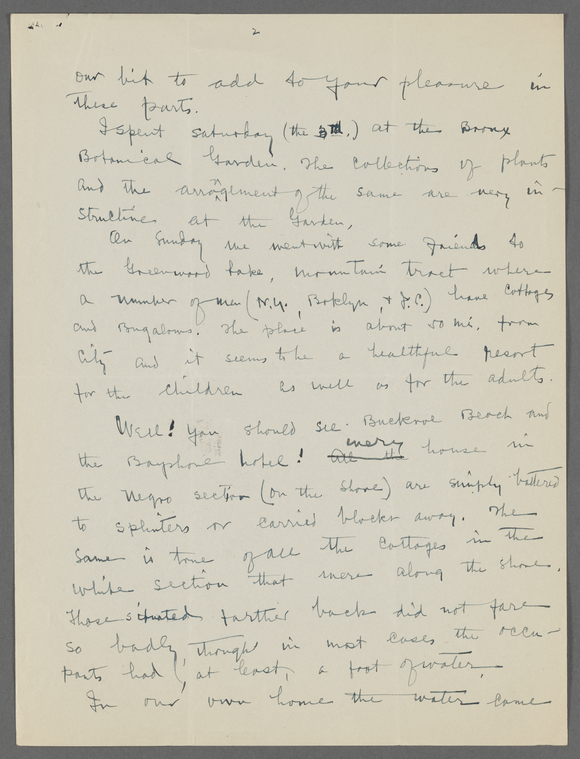 2
our bit to add to your pleasure in
these parts.
I spent Saturday (the 3rd.) at the Bronx
Botanical Garden. The collections of plants
and the arrangement of the same are very in-
structive at the Garden,
On Sunday we went with some friends to
the Greenwood Lake, mountain tract where
a number of men (N.Y., Boklyn, & J.C.) have cottages
and Bugalows. The place is about 50 mi. from
City and it seems to be a healthful resort
for the children as well as for the adults.
Well! You should see Buckroe Beach and
the Bayshore hotel! All the every house in
the Negro section (on the shore) are simply battered
to splinters or carried blocks away. The
same is true of all the cottages in the
white section that were along the shore.
Those situated farther back did not fare
so badly, though in most cases the occu-
pants had, at least, a foot of water.
In our own home the water came